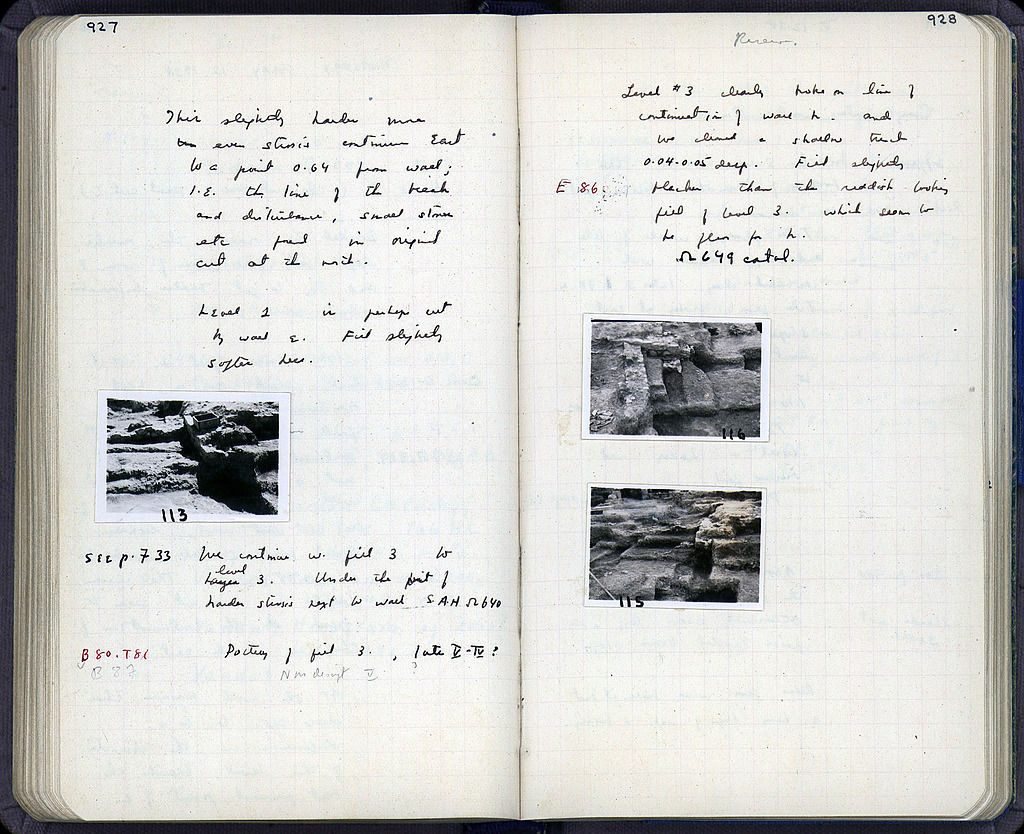 927
This slightly harder more
even strosis continues East
to a point 0.64 from wall;
I.E. the line of the break
and disturbance, small stones
etc found in original
cut at the north.
Level 1 is perhaps cut
by wall E. Fill slightly
softer here.
113
SEE p. 733 We continue w. fill 3 to
level
Layer 3. Under the part of
harder strosis next to wall SAH Ω640
B80. T86 Pottery of fill 3., late V-IV?
B 87 Non descript V ?
928
Level #3 clearly broke on line of
continuation of wall h. and
we cleaned a shallow trench
0.04-0.05 deep. Fill slightly
E 86. blacker than the reddish looking
fill of level 3. which seems to
be floor for h.
Ω649 catal.
116
115